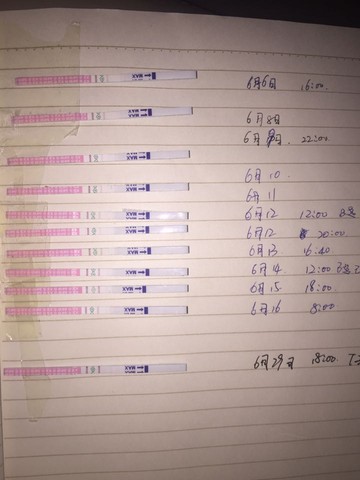 6月6日 16:00
6月8日
6月9日. 22:00
6月10.
6月11
6月12 12:00
6月12 20:00
6月13 16:40
6月14 12:00
6月15 18:00
6月16 8:00
6月29日 18:00
MAX
MAX
MAX
MAX
MAX
MAX
MAX
MAX
MAX
MAX
MAX